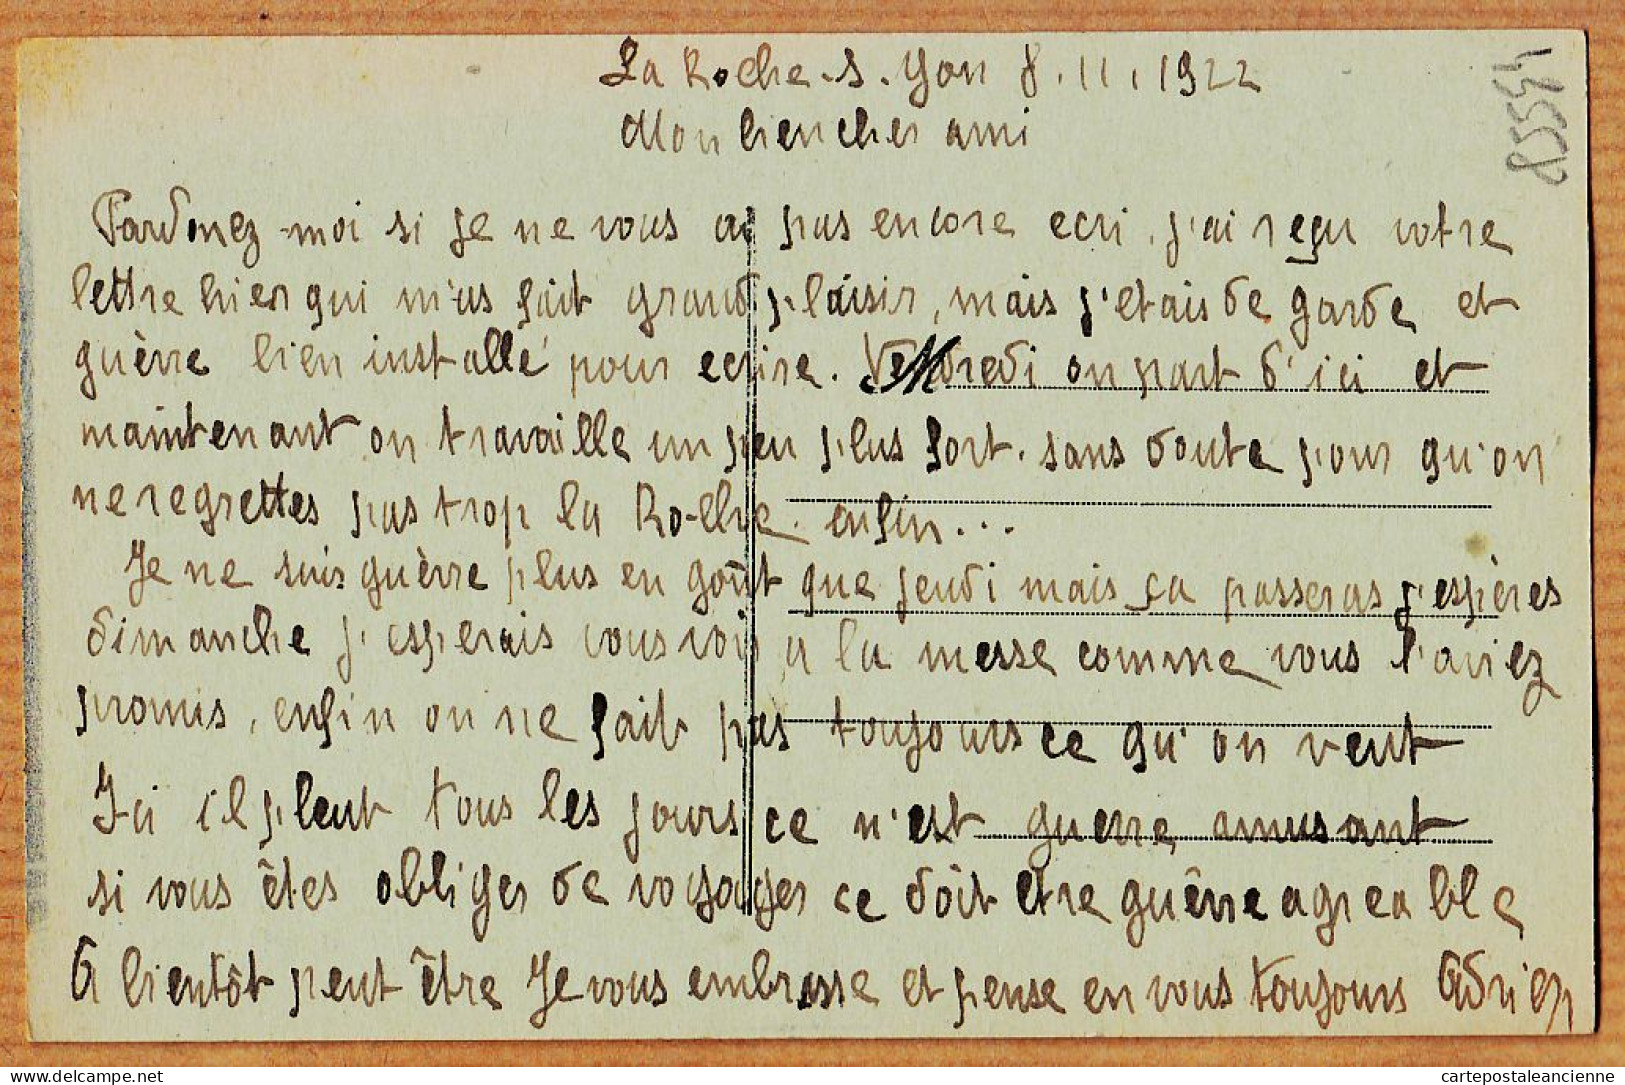 La Roche. S. Yon 8.11.1922
Mon bien cher ami
85534
Pardonez-moi si je ne vous ai pas encore ecri. j'ai reçu votre
lettre hier qui m'as fait grand plaisir, mais j'etais de garde et
guèrre bien installé pour ecrire. Vendredi on part d'ici et
maintenant on travaille un peu plus fort. sans doute pour qu'on
ne regrettes pas trop la Roche. enfin...
Je ne suis guèrre plus en goût que jeudi mais ça passeras j'espères
dimanche j'esperais vous voir a la messe comme vous l'aviez
promis, enfin on ne fait pas toujours ce qu'on veut
Ici il pleut tous les jours ce n'est guerre amusant
si vous êtes obliger de voyager ce doit etre guêrre agreable
A bientôt peut être Je vous embrasse et pense en vous toujours Adrien
cartepostaleancienne.com
cartepostaleancienne